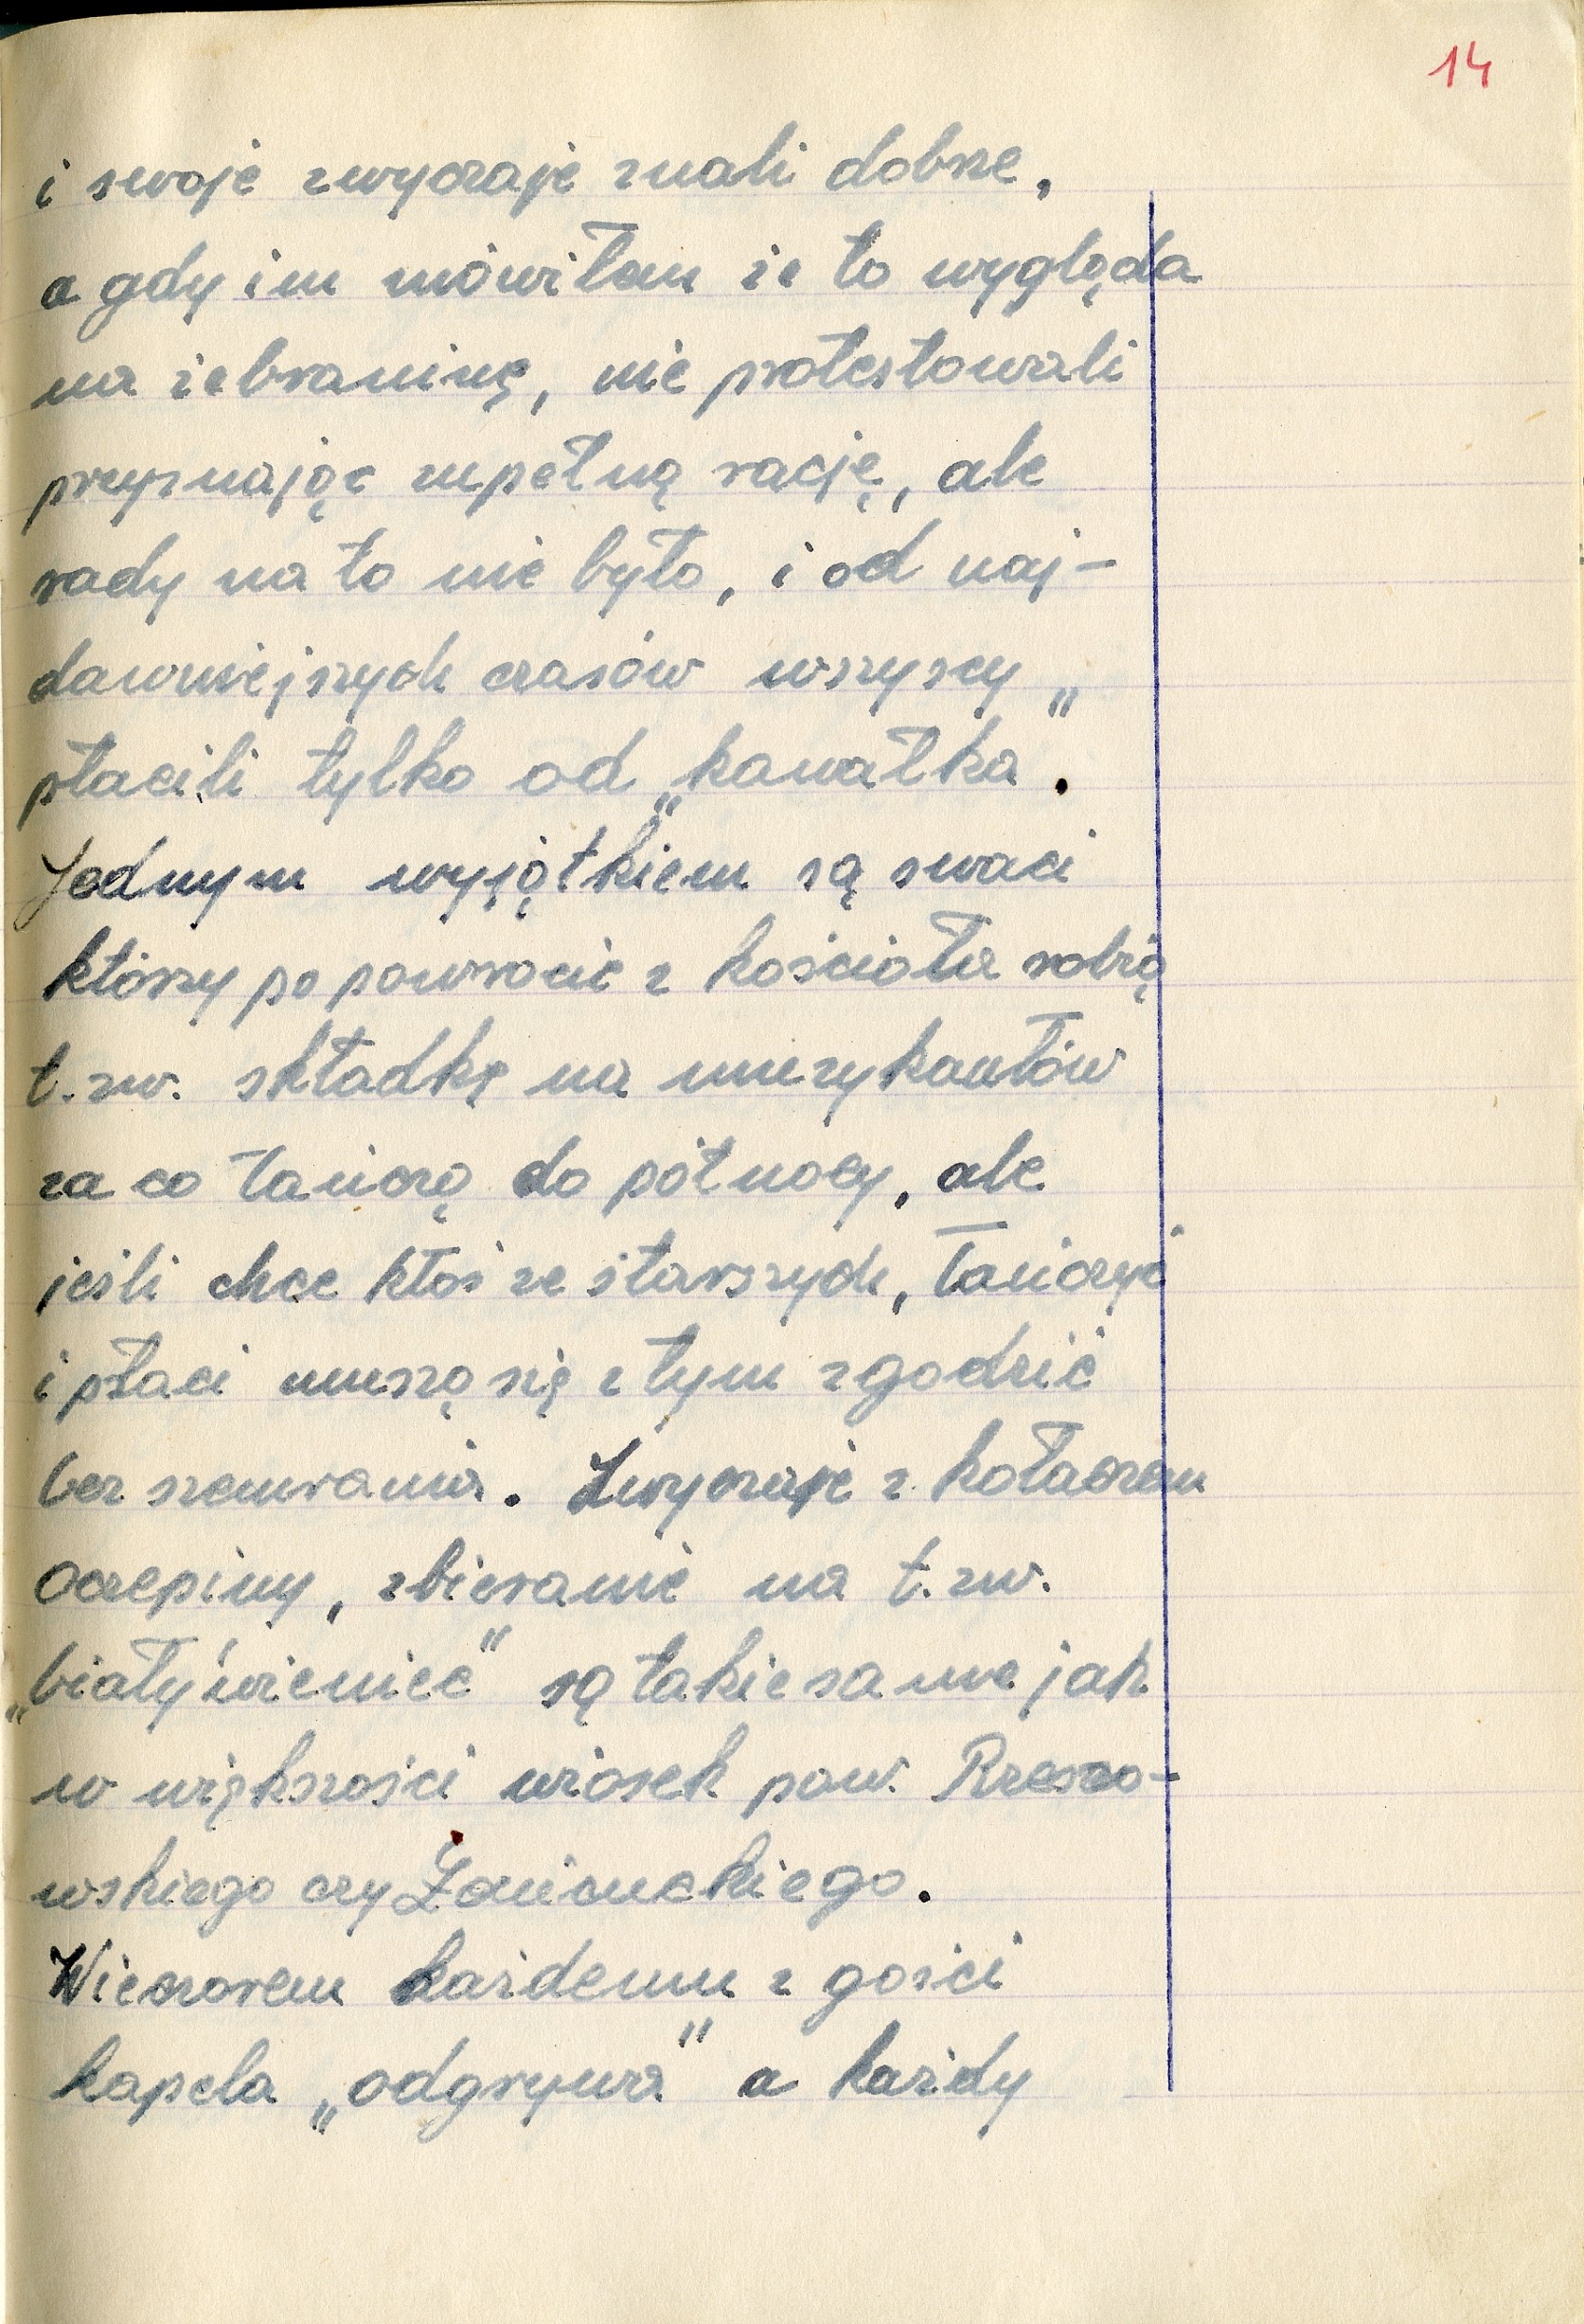 14
i swoje zwyczaje znali dobrze,
a gdy im mówiłem że to wygląda
na żebraninę, nie protestowali
przyznając zupełną rację, ale
rady na to nie było, i od naj-
dawniejszych czasów wszyscy
płacili tylko od „kawałka".
Jednym wyjątkiem są swaci
którzy po powrocie z kościoła robią
t.zw. składkę na muzykantów
za co tańczą do północy, ale
jeśli chce ktoś ze starszych, tańczyć
i płaci muszą się z tym zgodzić
bez szemrania. Zwyczaje z kołaczem
oczepiny, zbieranie na t.zw.
„biały wieniec" są takie same jak
w większości wiosek pow. Rzeszo-
wskiego czy Łańcuckiego.
Wieczorem każdemu z gości
kapela „odgrywa" a każdy